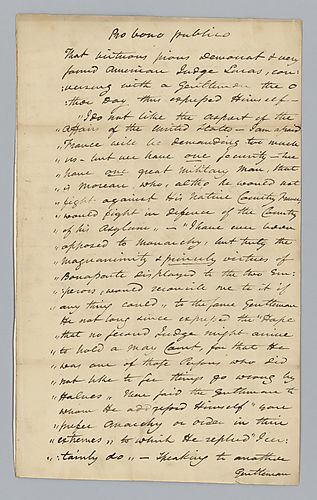 Pro bono publico
That virtuous pious democrat & very
found American Judge Lucas, con:
versing with a Gentleman the O
ther Day thus expressed Himself —
"I do not like the aspect of the
"affairs of the United States — I am afraid
"France will be demanding too much
"us — but we have one security — we
"have one great military Man, that
"is Moreau who, altho he would not
"fight against His native Country, Beauty
"would fight in defence of the Country
"of his Asylum" — "I have ever been
"opposed to Monarchy, but truly the
"magnanimity & princely virtues of
"Bonaparte displayed to the two Em:
"perors, would reconcile me to it if
"any thing could" to the same Gentleman
He not long since expressed the "Hope
"that no second Judge might arrive
"to hold a may Court, for that He
"was one of those Persons who did
"not like to see things go wrong by
"Halves" Then said the Gentleman to
whom He addressed Himself "you
"prefer Anarchy or order in their
"extremes" to which He replied "I cer:
"tainly do" — Speaking to another
Gentleman